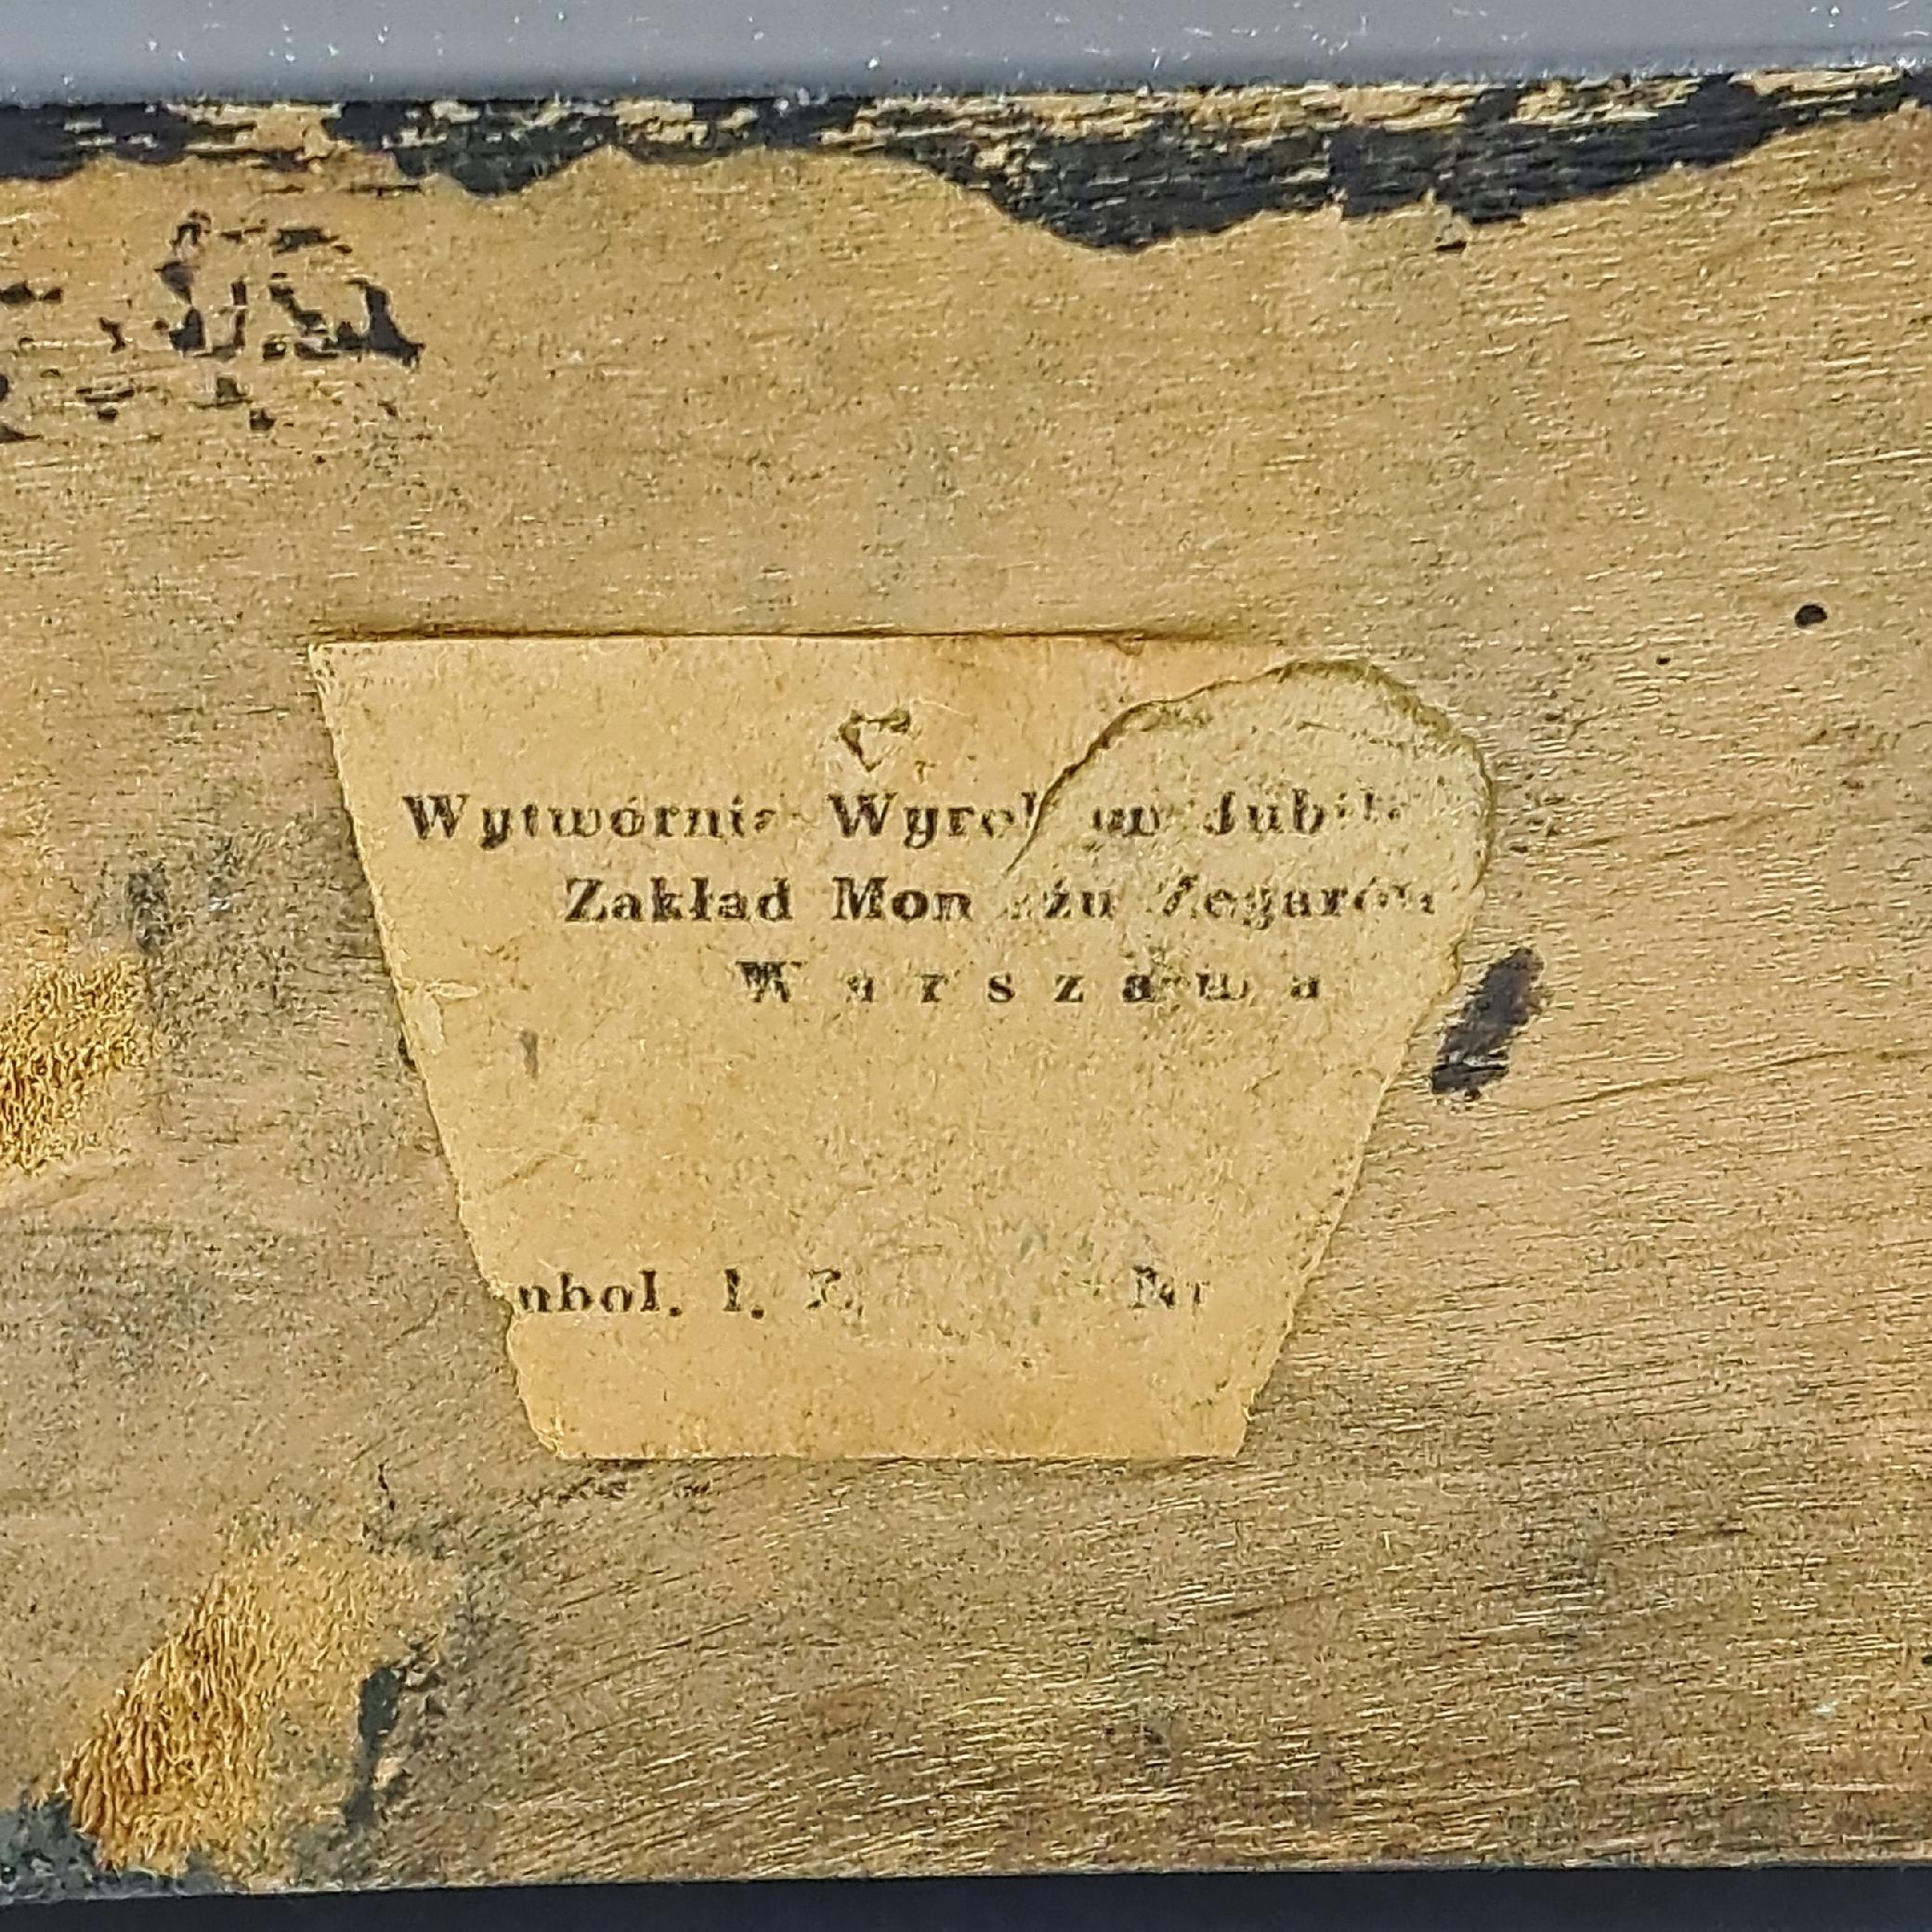 Wytwórnia Wyrobów Jubile
Zakład Montażu Zegarów
Warszawa
mbol. l. Z. Nr